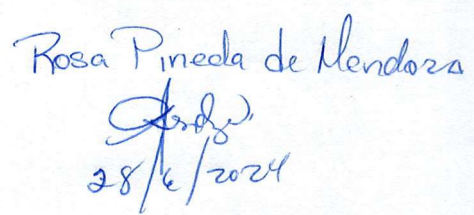 Rosa Pineda de Mendoza
28/6/2024